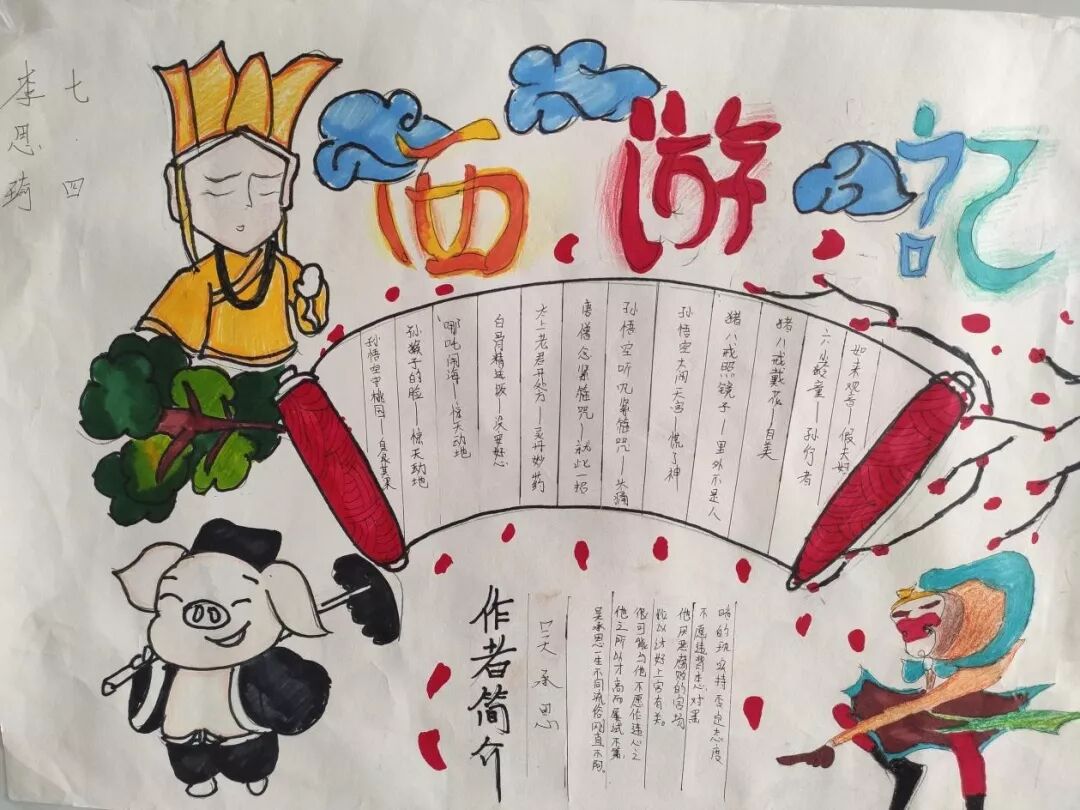 七四
李思琦
西游记
如来观音—假夫妻
六小龄童—孙行者
猪八戒戴花—自美
猪八戒照镜子—里外不是人
孙悟空大闹天宫—慌了神
孙悟空听咒紧箍咒—头痛
唐僧念紧箍咒—就此一招
太上老君开处方—灵丹妙药
白骨精送饭—没安好心
哪吒闹海—惊天动地
孙猴子的脸—惊天动地
孙悟空守桃园—自食其果
作者简介
吴承恩
吴承恩一生不同流俗刚直不阿。
他之所以才高而屡试不第,
很可能与他不愿作违心之
论以讨好上官有关。
他厌恶腐败的官场
不愿违背本心对黑
暗的现实持否定态度